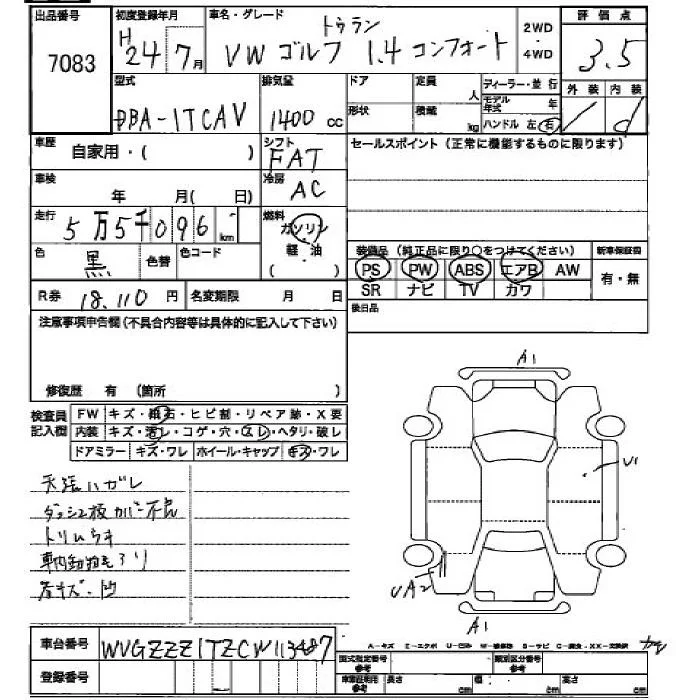 出品番号 初度登録年月 車名・グレード 2WD 評価点
7083 H24年7月 VW ゴルフ トゥラン 1.4 コンフォート 4WD 3.5
型式 排気量 ドア 定員 人 ディーラー・並行 外装 内装
DBA-1TCAV 1400 cc 形状 積載 kg モデル年式 年 d
ハンドル 左 右
車歴 自家用・( ) シフト FAT セールスポイント(正常に機能するものに限ります)
車検 年 月( 日) 冷房 AC
走行 5万5千096 km 燃料 ガソリン 軽・油 ( )
色 黒 色替 色コード 装備品(純正品に限り○をつけてください) 新車保証書
PS PW ABS エアB AW 有・無
R券 18,110 円 名変期限 月 日 SR ナビ TV カワ
注意事項申告欄(不具合内容等は具体的に記入して下さい) 後日品
修復歴 有 (箇所 )
検査員記入欄 FW キズ・飛石・ヒビ割・リペア跡・X要
内装 キズ・汚レ・コゲ・穴・スレ・ヘタリ・破レ
ドアミラー キズ・ワレ ホイール・キャップ キズ・ワレ
天張ハガレ
ダッシュ板カバー不良
トリムウキ
車内動物毛あり
各キズ・凹
A1
U1
UA2
A1
A-キズ E-エクボ U-凹み W-補修跡 S-サビ C-腐食・XX-交換済
車台番号 WVGZZZ1TZCW113487
登録番号
型式指定番号 参考 類別区分番号 参考
車庫証明用 参考 長さ cm 幅 cm 高さ cm